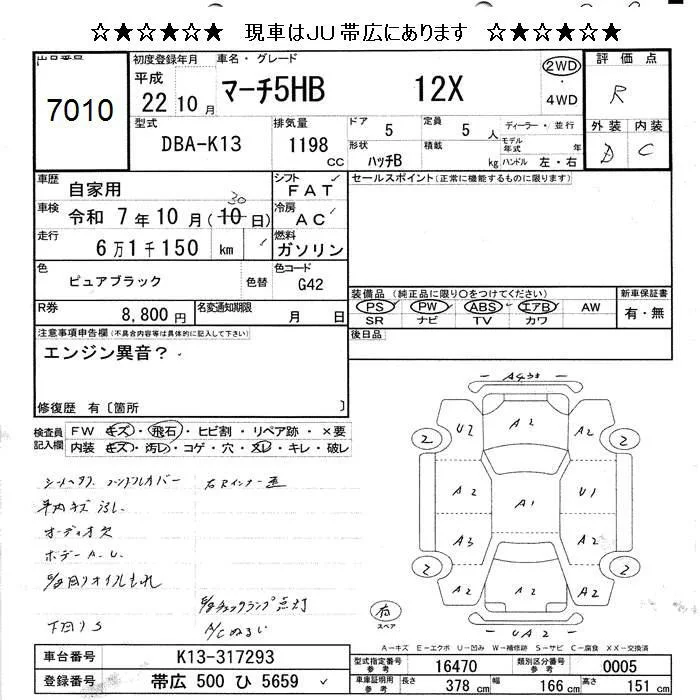 ☆★☆★☆★ 現車はJU帯広にあります ☆★☆★☆★
出品番号 初度登録年月 車名・グレード 評価点
7010 平成 22 10月 マーチ5HB 12X 2WD ・ 4WD R
型式 排気量 ドア 定員 ディーラー・並行 外装 内装
DBA-K13 1198 CC 5 5 人 モデル年式 年 D C
形状 積載
ハッチB kg ハンドル 左・右
車歴 自家用 シフト FAT セールスポイント(正常に機能するものに限ります)
車検 令和 7年10月(10日) 30 冷房 AC
走行 6万1千150 km 燃料 ガソリン
色 ピュアブラック 色替 色コード G42
装備品(純正品に限り○をつけてください) 新車保証書
PS PW ABS エアB AW 有・無
SR ナビ TV カワ
R券 8,800円 名変通知期限 月 日 後日品
注意事項申告欄(不具合内容等は具体的に記入して下さい)
エンジン異音?
修復歴 有〔箇所 〕
検査員記入欄 FW キズ・飛石・ヒビ割・リペア跡・×要
内装 キズ・汚レ・コゲ・穴・スレ・キレ・破レ
A2
U2 A2 A2
2 2
A2 A1 U1
A3 A2
2 2
A2 A2 A2
UA2
オーディオ欠
ボデーA.U.
下回りS
A/Cぬるい
有 スペア
A-キズ E-エクボ U-凹み W-補修跡 S-サビ C-腐食 XX-交換済
車台番号 K13-317293 型式指定番号 参考 16470 類別区分番号 参考 0005
登録番号 帯広 500 ひ 5659 車庫証明用 参考 長さ 378 cm 幅 166 cm 高さ 151 cm